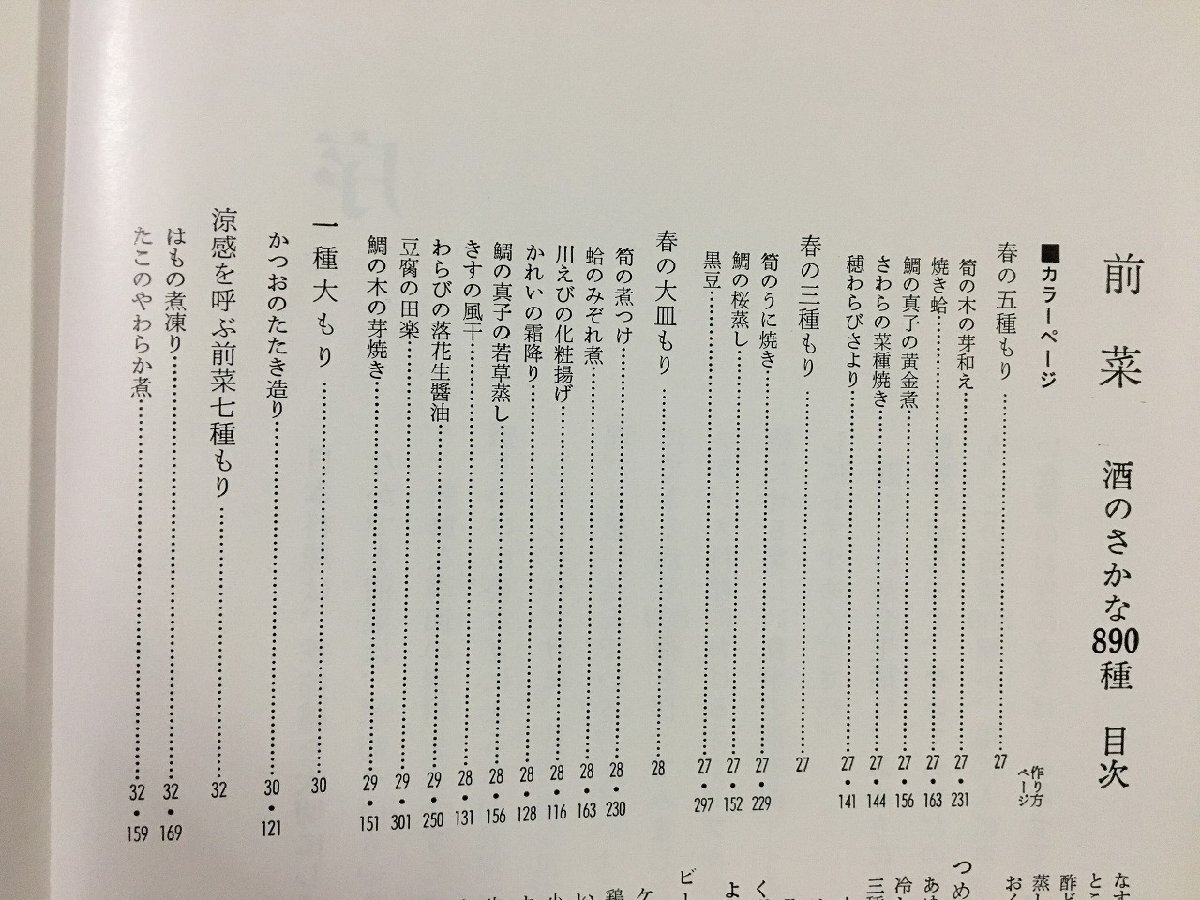 前菜 酒のさかな890種 目次
■カラーページ
作り方ページ
春の五種もり……27
筍の木の芽和え……27・231
焼き蛤……27・163
鯛の真子の黄金煮……27・156
さわらの菜種焼き……27・144
穂わらびさより……27・141
春の三種もり……27
筍のうに焼き……27・229
鯛の桜蒸し……27・152
黒豆……27・297
春の大皿もり……28
筍の煮つけ……28・230
蛤のみぞれ煮……28・163
川えびの化粧揚げ……28・116
かれいの霜降り……28・128
鯛の真子の若草蒸し……28・156
きすの風干……28・131
わらびの落花生醬油……29・250
豆腐の田楽……29・301
鯛の木の芽焼き……29・151
一種大もり……30
かつおのたたき造り……30・121
涼感を呼ぶ前菜七種もり……32
はもの煮凍り……32・169
たこのやわらか煮……32・159
なす
とこ
酢ど
蒸し
おく
つめ
あゆ
冷し
三種